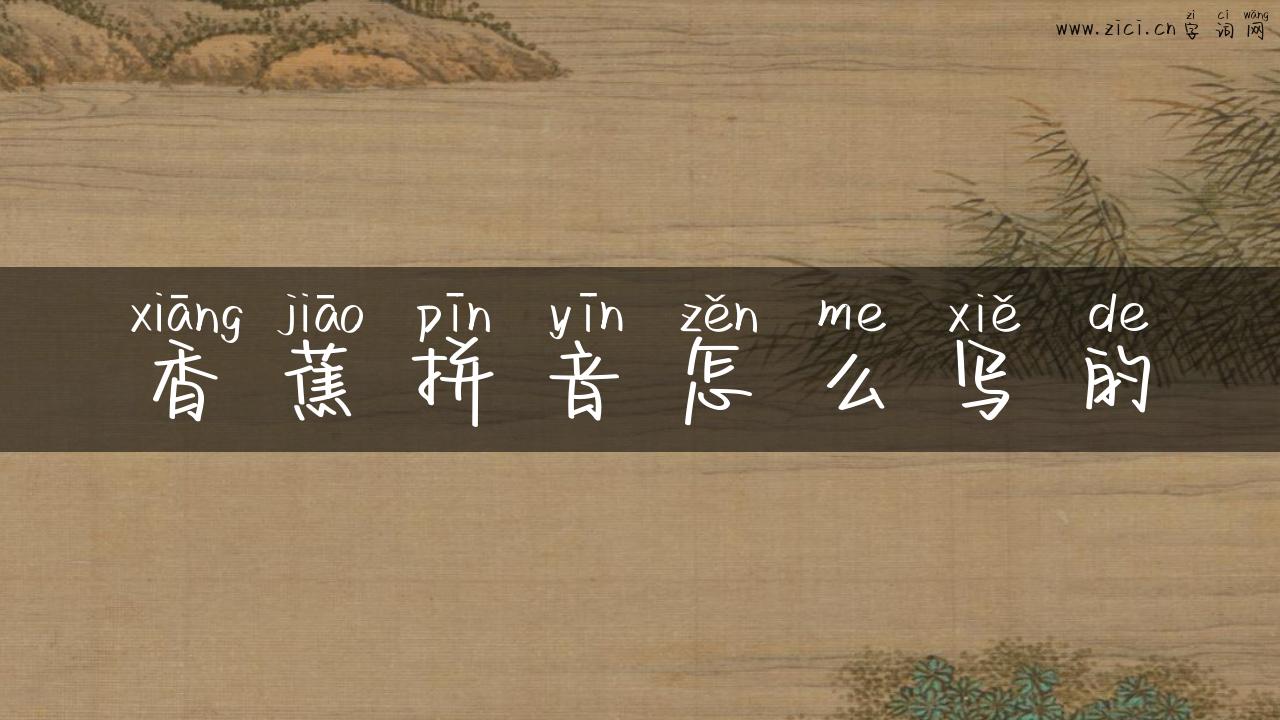 zì cí wǎng
www.zici.cn 字词网
xiāng jiāo pīn yīn zěn me xiě de
香蕉拼音怎么写的